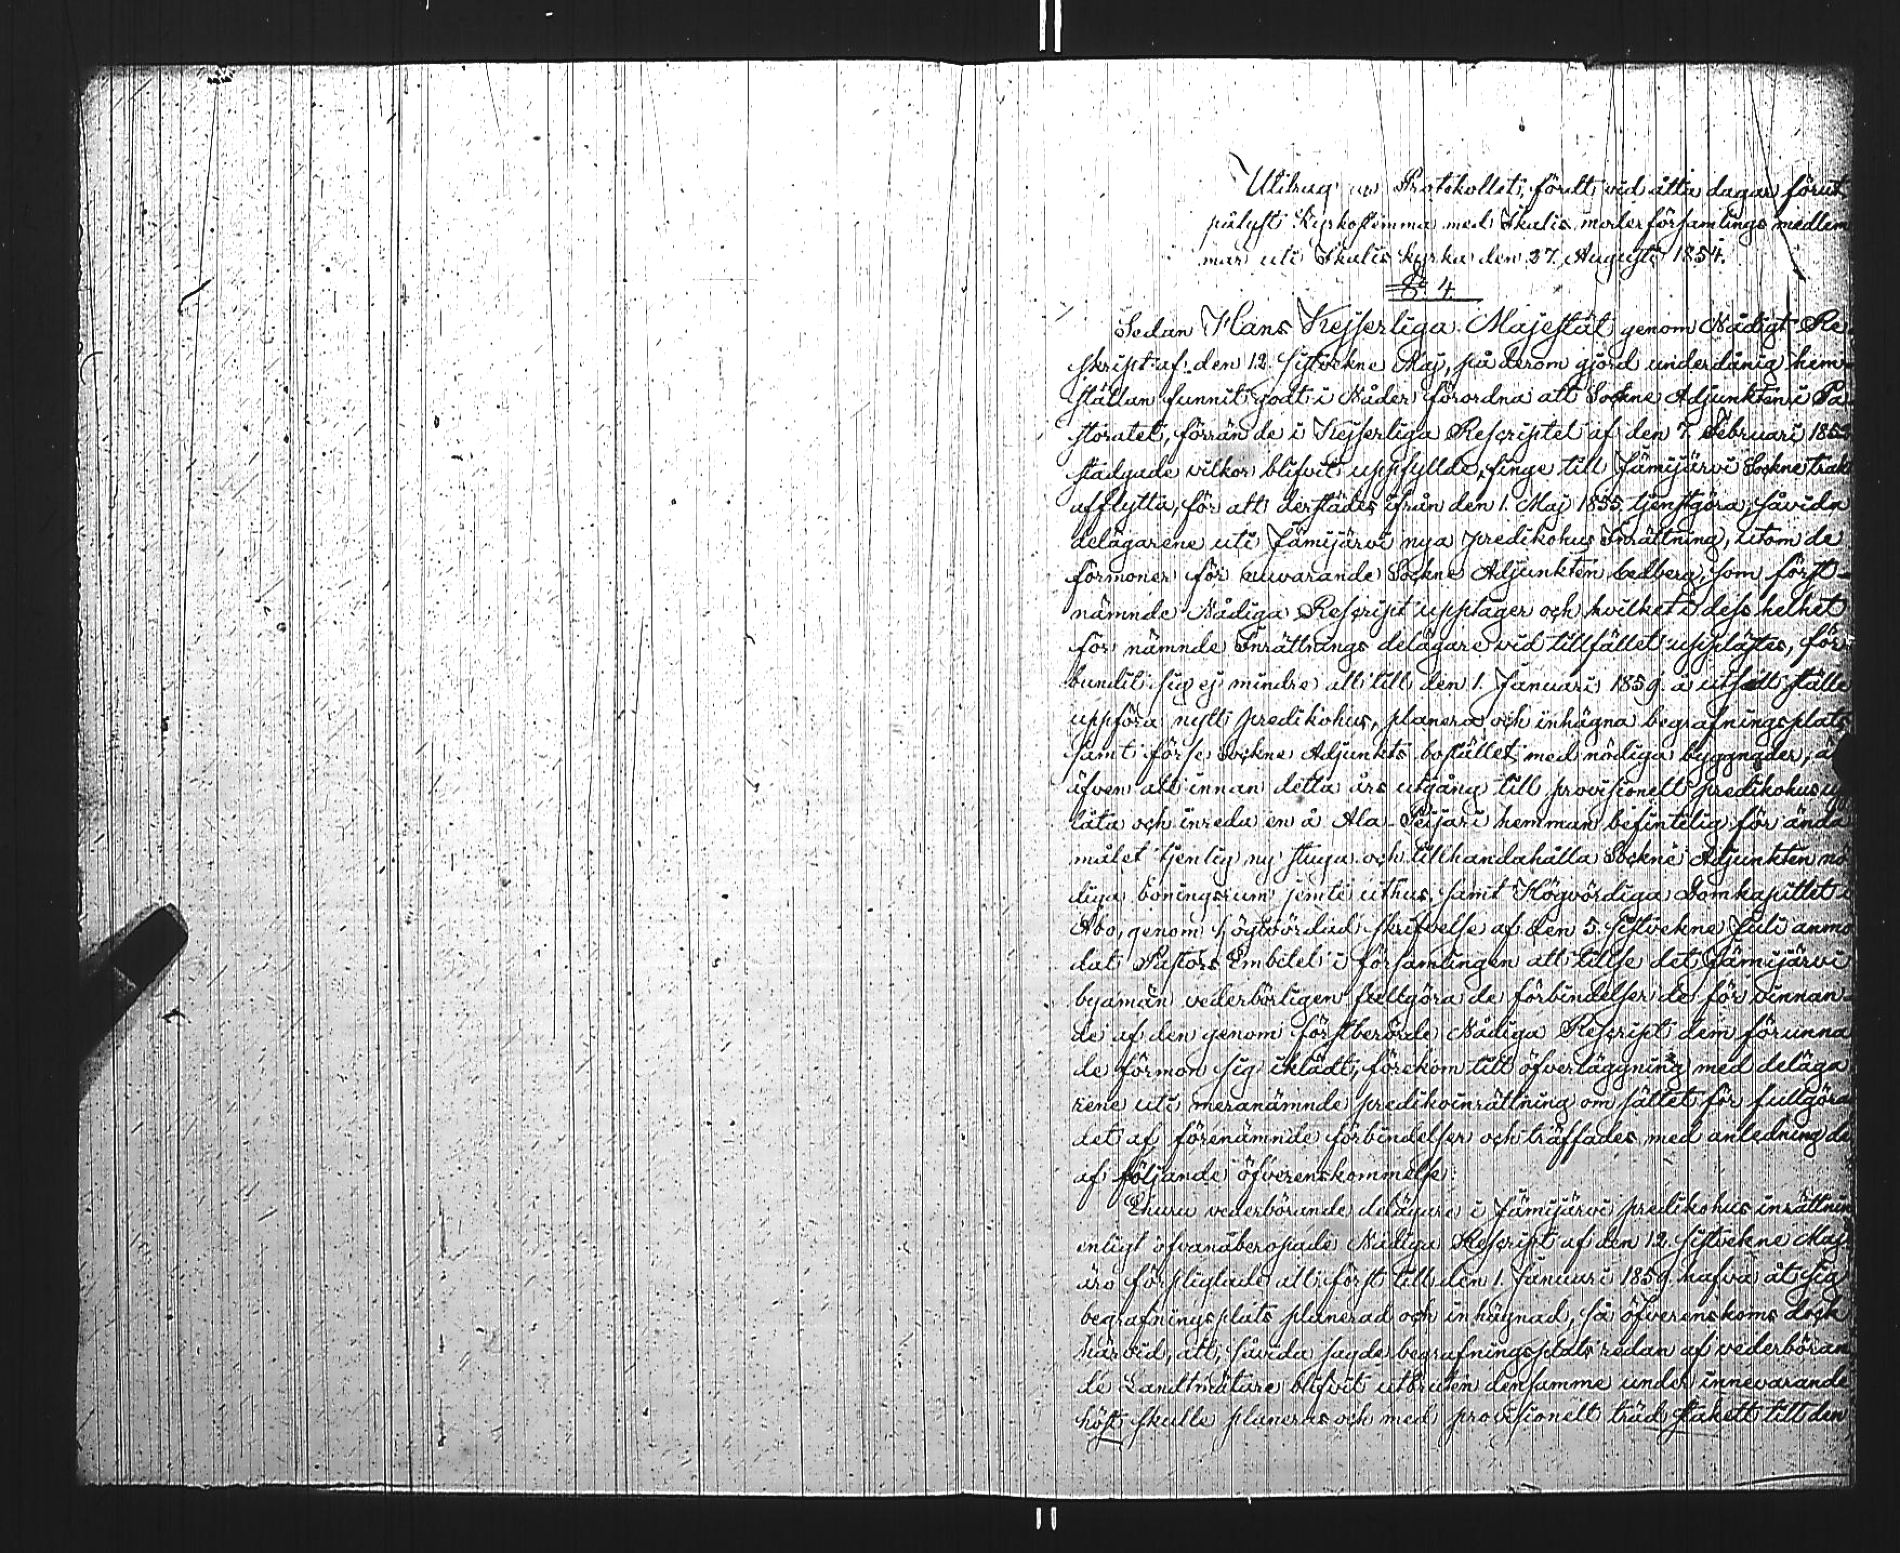 Utdrag av Protokollet, fördt vid åtta dagar förut
pålyst Kyrkostemma med Ikalis moderförsamlings medlem
mar uti Ikalis Kyrka den 27 Augusti 1854.
§. 4
Sedan Hans Kejserliga Majestät genom Nådigt Re
skript af den 12. sistvekne Maj, på derom gjord underdånig hem-
ställan funnit godt i Nåder förordna att Sockne Adjunkten i Pa
storatet, förrän de i Kejserliga Rescriptet af den 7. Februari 185
stadgade vilkor blifvit uppfyllde, finge till Jämijärvi Sockne trakt
afflytta, för att derstädes ifrån den 1. Maj 1855 tjenstgöra, såvida
delägarene uti Jämijärvi nya predikohus Inrättning, utom de
förmoner för nuvarande Sockne Adjunkten Cedberg, som först-
nämnde Nådiga Rescript upptager och hvilket i dess helhet
för nämnde Inrättnings delägare vid tillfället upplästes, för
bundit sig ej mindre att till den 1. Januari 1859 å utsedt ställe
uppföra nytt predikohus, planera och inhägna begrafningsplats
samt förse Sockne Adjunkts bostället med nödiga byggnader, ä
äfven att innan detta års utgång till provisionelt predikohus up
låta och inreda en å Ala-Peijari hemman befintelig för ända
målet tjenlig ny stuga och tillhandahålla Sockne Adjunkten nö
diga boningsrum jemte uthus, samt Högvördiga Domkapitlet i
Åbo, genom högtvördad skrifvelse af den 5. sistvekne Juli anmo
dat Pastors Embetet i församlingen att tillse det Jämijärvi
byamän vederbörligen fullgöra de förbindelser de för vinnan-
de af den genom förstberörde Nådiga Rescript dem förunna
de förmon sig iklädt, förekom till öfverläggning med deläga
rene uti meranämnde predikoinrättning om sättet för fullgöra
det af förenämnde förbindelser och träffades med anledning de
af följande öfverenskommelse:
Ehuru vederbörande delägare i Jämijärvi predikohus inrättnin
enligt ofvanåberopade Nådiga Rescript af den 12. sistvekne Maj
äro förpligtade att först till den 1. Januari 1859 hafva åt sig
begrafningsplats planerad och inhägnad, så öfverenskoms dock
härvid, att, såvida sagde begrafningsplats redan af vederböran
de Landtmätare blifvit utbruten densamme under innevarande
höst skulle planeras och med provisionelt träd stakett till den